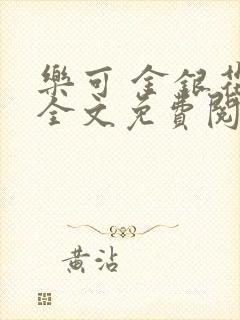 樂可 金銀花
全文免費閱
黃沾